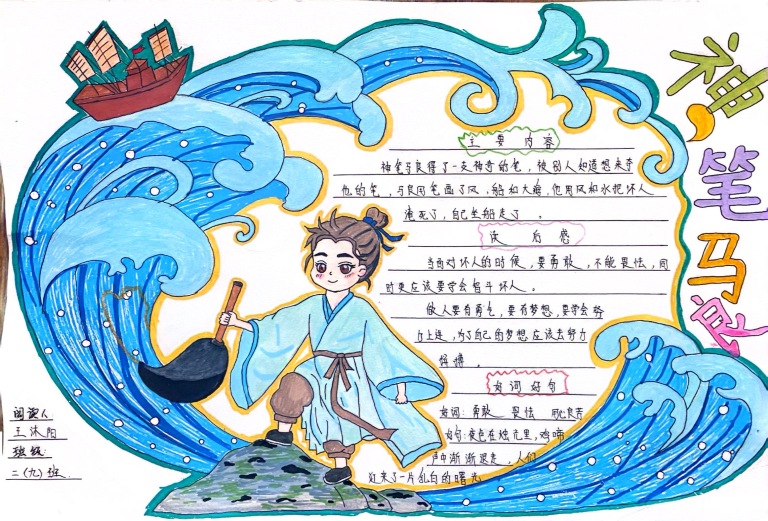 神笔马良
主要内容
神笔马良得了一支神奇的笔,被别人知道想来夺
他的笔,马良用笔画了风,船和大海,他用风和水把坏人
淹死了,自己坐船走了。
读后感
当面对坏人的时候,要勇敢,不能畏怯,同
时更应该要学会智斗坏人。
做人要有勇气,要有梦想,要学会努
力上进,为了自己的梦想应该去努力
拼搏。
好词好句
好词:勇敢 畏怯
好句:夜色在烛光里,鸡啼
声中渐渐退走,人们
迎来了一片乳白的曙光。
阅读人
王沐阳
班级:
二(九)班